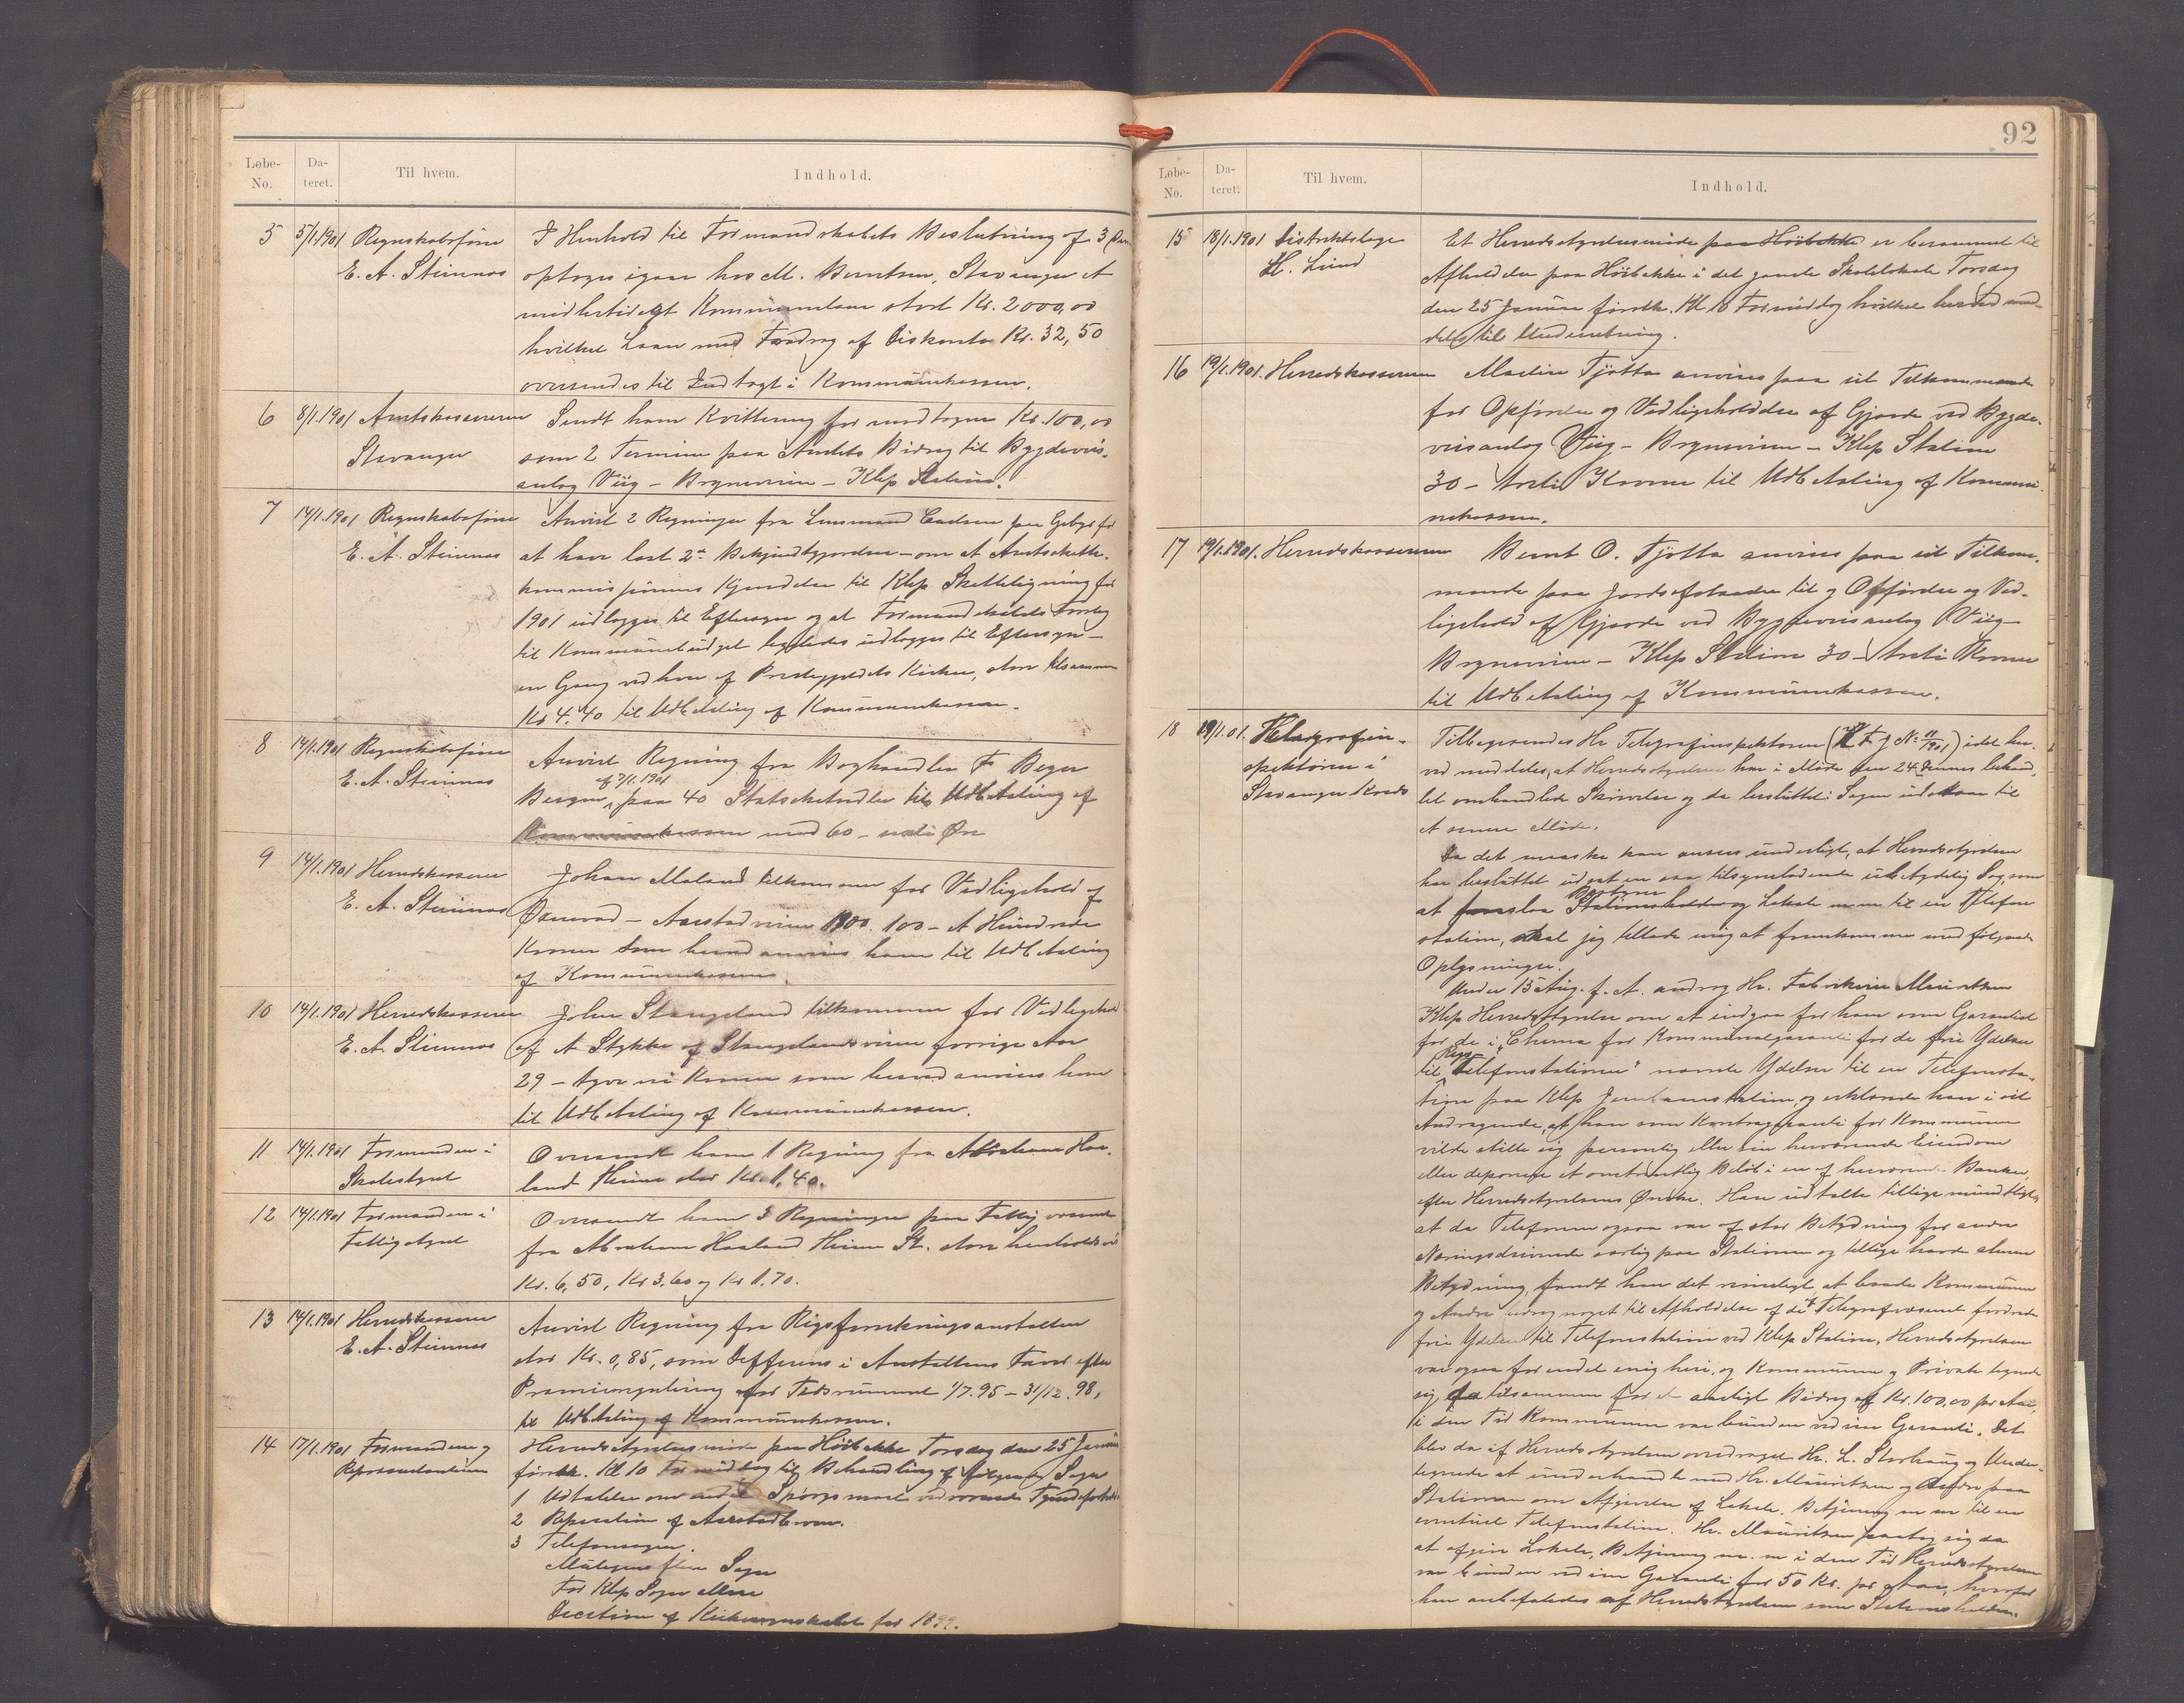 Løbe-No. Da-teret. Til hvem. Indhold.
5 5/1.1901 Regnskabsfører E. A. Steinnes
I Henhold til Formandskabets Beslutning af 3
optoges igaar hos M. Berntsen, Stavanger et
midlertidigt Kommunelaan stort Kr. 2000,00
hvilket Laan med Fradrag af Diskonto Kr. 32,50
oversendes til Indtægt i Kommunekassen.
6 8/1.1901 Amtskassereren Stavanger
Sendt ham Kvittering for modtagne Kr. 100,00
som 2 Termin paa Amtets Bidrag til Bygdeveis-
anlæg Viig - Bryneveien - Klep Station.
7 14/1.1901 Regnskabsfører E. A. Steinnes
Anvist 2 Regninger fra Lensmand Carlsen paa Gebyr for
at have læst 2de Bekjendtgjørelser - om at Amtsskatte-
kommissionens Kjendelse til Klep Skatteligning for
1901 udlægges til Eftersyn og at Formandskabets Forslag
til Kommunebudget ligeledes udlægges til Eftersyn -
en Gang ved hver af Prestegjeldets Kirker, stor tilsammen
Kr 4.40 til Udbetaling af Kommunekassen.
8 14/1.1901 Regnskabsfører E. A. Steinnes
Anvist Regning fra Boghandler F Beyer
Bergen af 7/1.1901 paa 40 Statsskatsedler til Udbetaling af
Kommunekassen med 60 - seksti Øre
9 14/1.1901 Herredskasserer E. A. Steinnes
Johan Møland tilkommer for Vedligehold af
Øxnevad - Aarstadveien 1900. 100 - Et Hundrede
Kroner som herved anvises ham til Udbetaling
af Kommunekassen
10 14/1.1901 Herredskasserer E. A. Steinnes
John Stangeland tilkommer for Vedligehold
af et Stykke af Stangelandsveien forrige Aar
29 - tyve ni Kroner som herved anvises ham
til Udbetaling af Kommunekassen.
11 14/1.1901 Formanden i Skolestyret
Oversendt ham 1 Regning fra Abraham Haa-
land Heime stor Kr. 1,40.
12 14/1.1901 Formanden i Fattigstyret
Oversendt ham 3 Regninger paa Fattigvæsenet
fra Abraham Haaland Heime St. stor henholdsvis
Kr. 6,50, Kr 3.60 og Kr 1.70.
13 14/1.1901 Herredskasserer E. A. Steinnes
Anvist Regning fra Rigsforsikringsanstalten
stor Kr. 0,85, som Differens i Anstaltens Favør efter
Præmieregulering for Tidsrummet 1/7.95 - 31/12.98,
til Udbetaling af Kommunekassen.
14 17/1.1901 Formændene og Repræsentanterne
Herredsstyrelsesmøde paa Høibakke Torsdag den 25 Januar
førstk. Kl 10 Formiddag til Behandling af følgende Sager
1 Udtalelse om endel Spørgsmaal vedrørende
2 Reparation af Aarstadbroen.
3 Telefonsagen.
Muligens flere Sager
For Klep Sogn alene
Decision af Kirkeregnskabet for 1899.
92
Løbe-No. Da-teret. Til hvem. Indhold.
15 18/1.1901 Distriktslæge H. Lund
Et Herredsstyrelsesmøde paa Høibakke er berammet til
Afholdelse paa Høibakke i det gamle Skolelokale Torsdag
den 25 Januar førstk. Kl. 10 Formiddag hvilket herved med-
deles til Underretning.
16 19/1.1901. Herredskassereren
Martin Tjøtta anvises paa sit Tilkommende
for Opførelse og Vedligeholdelse af Gjærde ved Bygde-
veisanlæg Viig - Bryneveien - Klep Station
30 - tretti Kroner til Udbetaling af Kommu-
nekassen.
17 19/1.1901. Herredskassereren
Bernt O. Tjøtta anvises paa sit Tilkom-
mende paa Jordafstaaelse til og Opførelse og Ved-
ligehold af Gjærde ved Bygdeveisanlæg Viig -
Bryneveien - Klep Station 30 - tretti Kroner
til Udbetaling af Kommunekassen.
18 29/1.01. Telegrafin-spektøren i Stavanger Kreds
Tilbagesendes Hr Telegrafinspektøren ( J No 11/1901) idet her-
ved meddeles, at Herredsstyrelsen har i Møde den 24 dennes behand-
let omhandlede Skrivelse og da besluttet: Sagen udstaar til
et senere Møde.
Da det maaske kan ansees underligt, at Herredsstyrelsen
har besluttet udsat en saa tilsyneladende ubetydelig Sag, som
at foreslaa Bestyrer Stationsholder og Lokale m m til en Telefon
station, skal jeg tillade mig at fremkomme med følgende
Oplysninger.
Under 13 Aug. f. A. androg Hr. Fabrikeier Mauritzen
Klep Herredsstyrelse om at indgaa for ham som Garantist
for de i "Schema for Kommunalgaranti for de frie Ydelser
til Rigstelefonstationer" nævnte Ydelser til en Telefonsta-
tion paa Klep Jernbanestation, og erklærede han i sit
Andragende, at han som Kontragaranti for Kommunen
vilde stille sig personlig eller sin herværende Eiendom
eller deponere et omtrentlig Beløb i en af herværende Banker,
efter Herredsstyrelsens Ønske. Han udtalte tillige mundtligt,
at da Telefonen ogsaa var af stor Betydning for andre
Næringsdrivende særlig paa Stationen og tillige havde almen
Betydning, fandt han det rimeligt, at baade Kommunen
og Andre udrog noget til Afholdelse af de af Telegrafvæsenet fordrede
frie Ydelser til Telefonstation ved Klep Station. Herredsstyrelsen
var ogsaa for endel enig heri, og Kommunen og Private tegnede
sig da tilsammen for et aarligt Bidrag af Kr. 100,00 pr Aar,
i den Tid Kommunen var bunden ved sin Garanti. Det
blev da af Herredsstyrelsen overdraget Hr. L. Storhaug og Under-
tegnede at underhandle med Hr. Mauritzen og Andre paa
Stationen om Afgivelse af Lokale, Betjening m m til en
eventuel Telefonstation. Hr. Mauritzen paatog sig da
at afgive Lokale, Betjening m. m i den Tid Herredsstyrelsen
var bunden ved sin Garanti for 50 Kr. pr Aar, hvorfor
han anbefaledes af Herredsstyrelsen som Stationsholder.